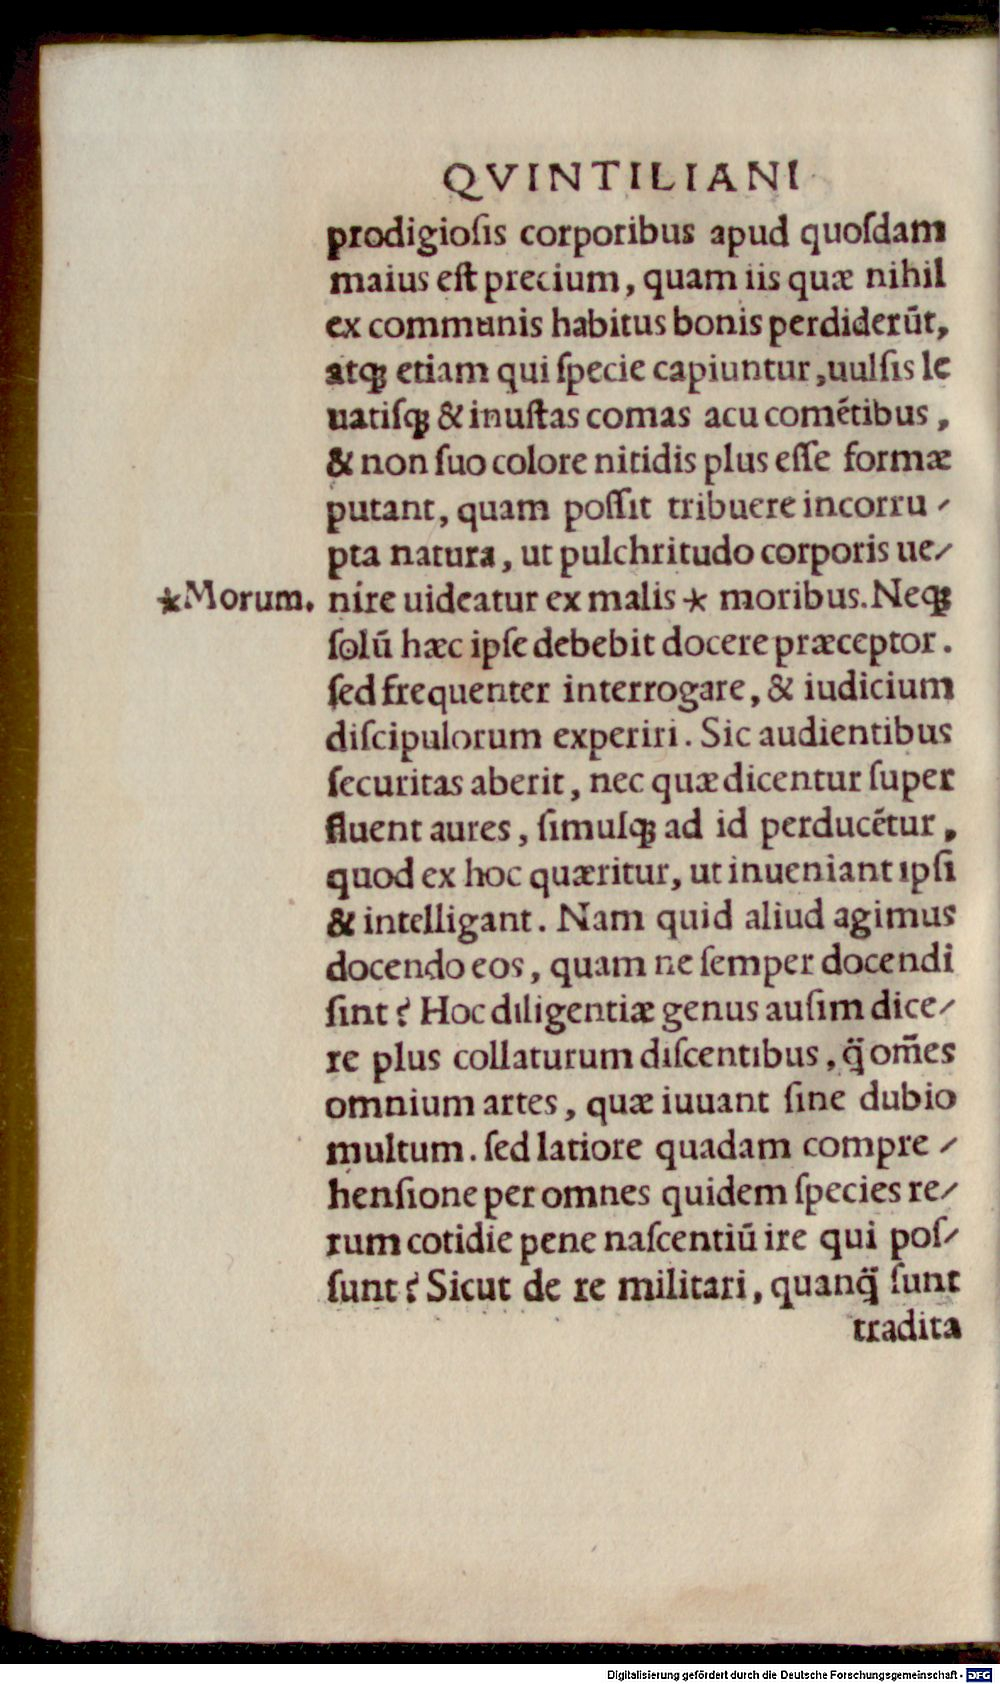 QVINTILIANI
prodigiosis corporibus apud quosdam
maius est precium, quam iis quæ nihil
ex communis habitus bonis perdiderūt,
atqꝫ etiam qui specie capiuntur, uulsis le
uatisqꝫ & inustas comas acu comētibus,
& non suo colore nitidis plus esse formæ
putant, quam possit tribuere incorru⸗
pta natura, ut pulchritudo corporis ue⸗
*Morum. nire uideatur ex malis * moribus. Neqꝫ
solū hæc ipse debebit docere præceptor.
sed frequenter interrogare, & iudicium
discipulorum experiri. Sic audientibus
securitas aberit, nec quæ dicentur super
fluent aures, simulqꝫ ad id perducētur,
quod ex hoc quæritur, ut inueniant ipsi
& intelligant. Nam quid aliud agimus
docendo eos, quam ne semper docendi
sint? Hoc diligentiæ genus ausim dice⸗
re plus collaturum discentibus, q̃ om̄es
omnium artes, quæ iuuant sine dubio
multum. sed latiore quadam compre⸗
hensione per omnes quidem species re⸗
rum cotidie pene nascentiū ire qui pos⸗
sunt? Sicut de re militari, quanq̃ sunt
tradita
Digitalisierung gefördert durch die Deutsche Forschungsgemeinschaft - DFG